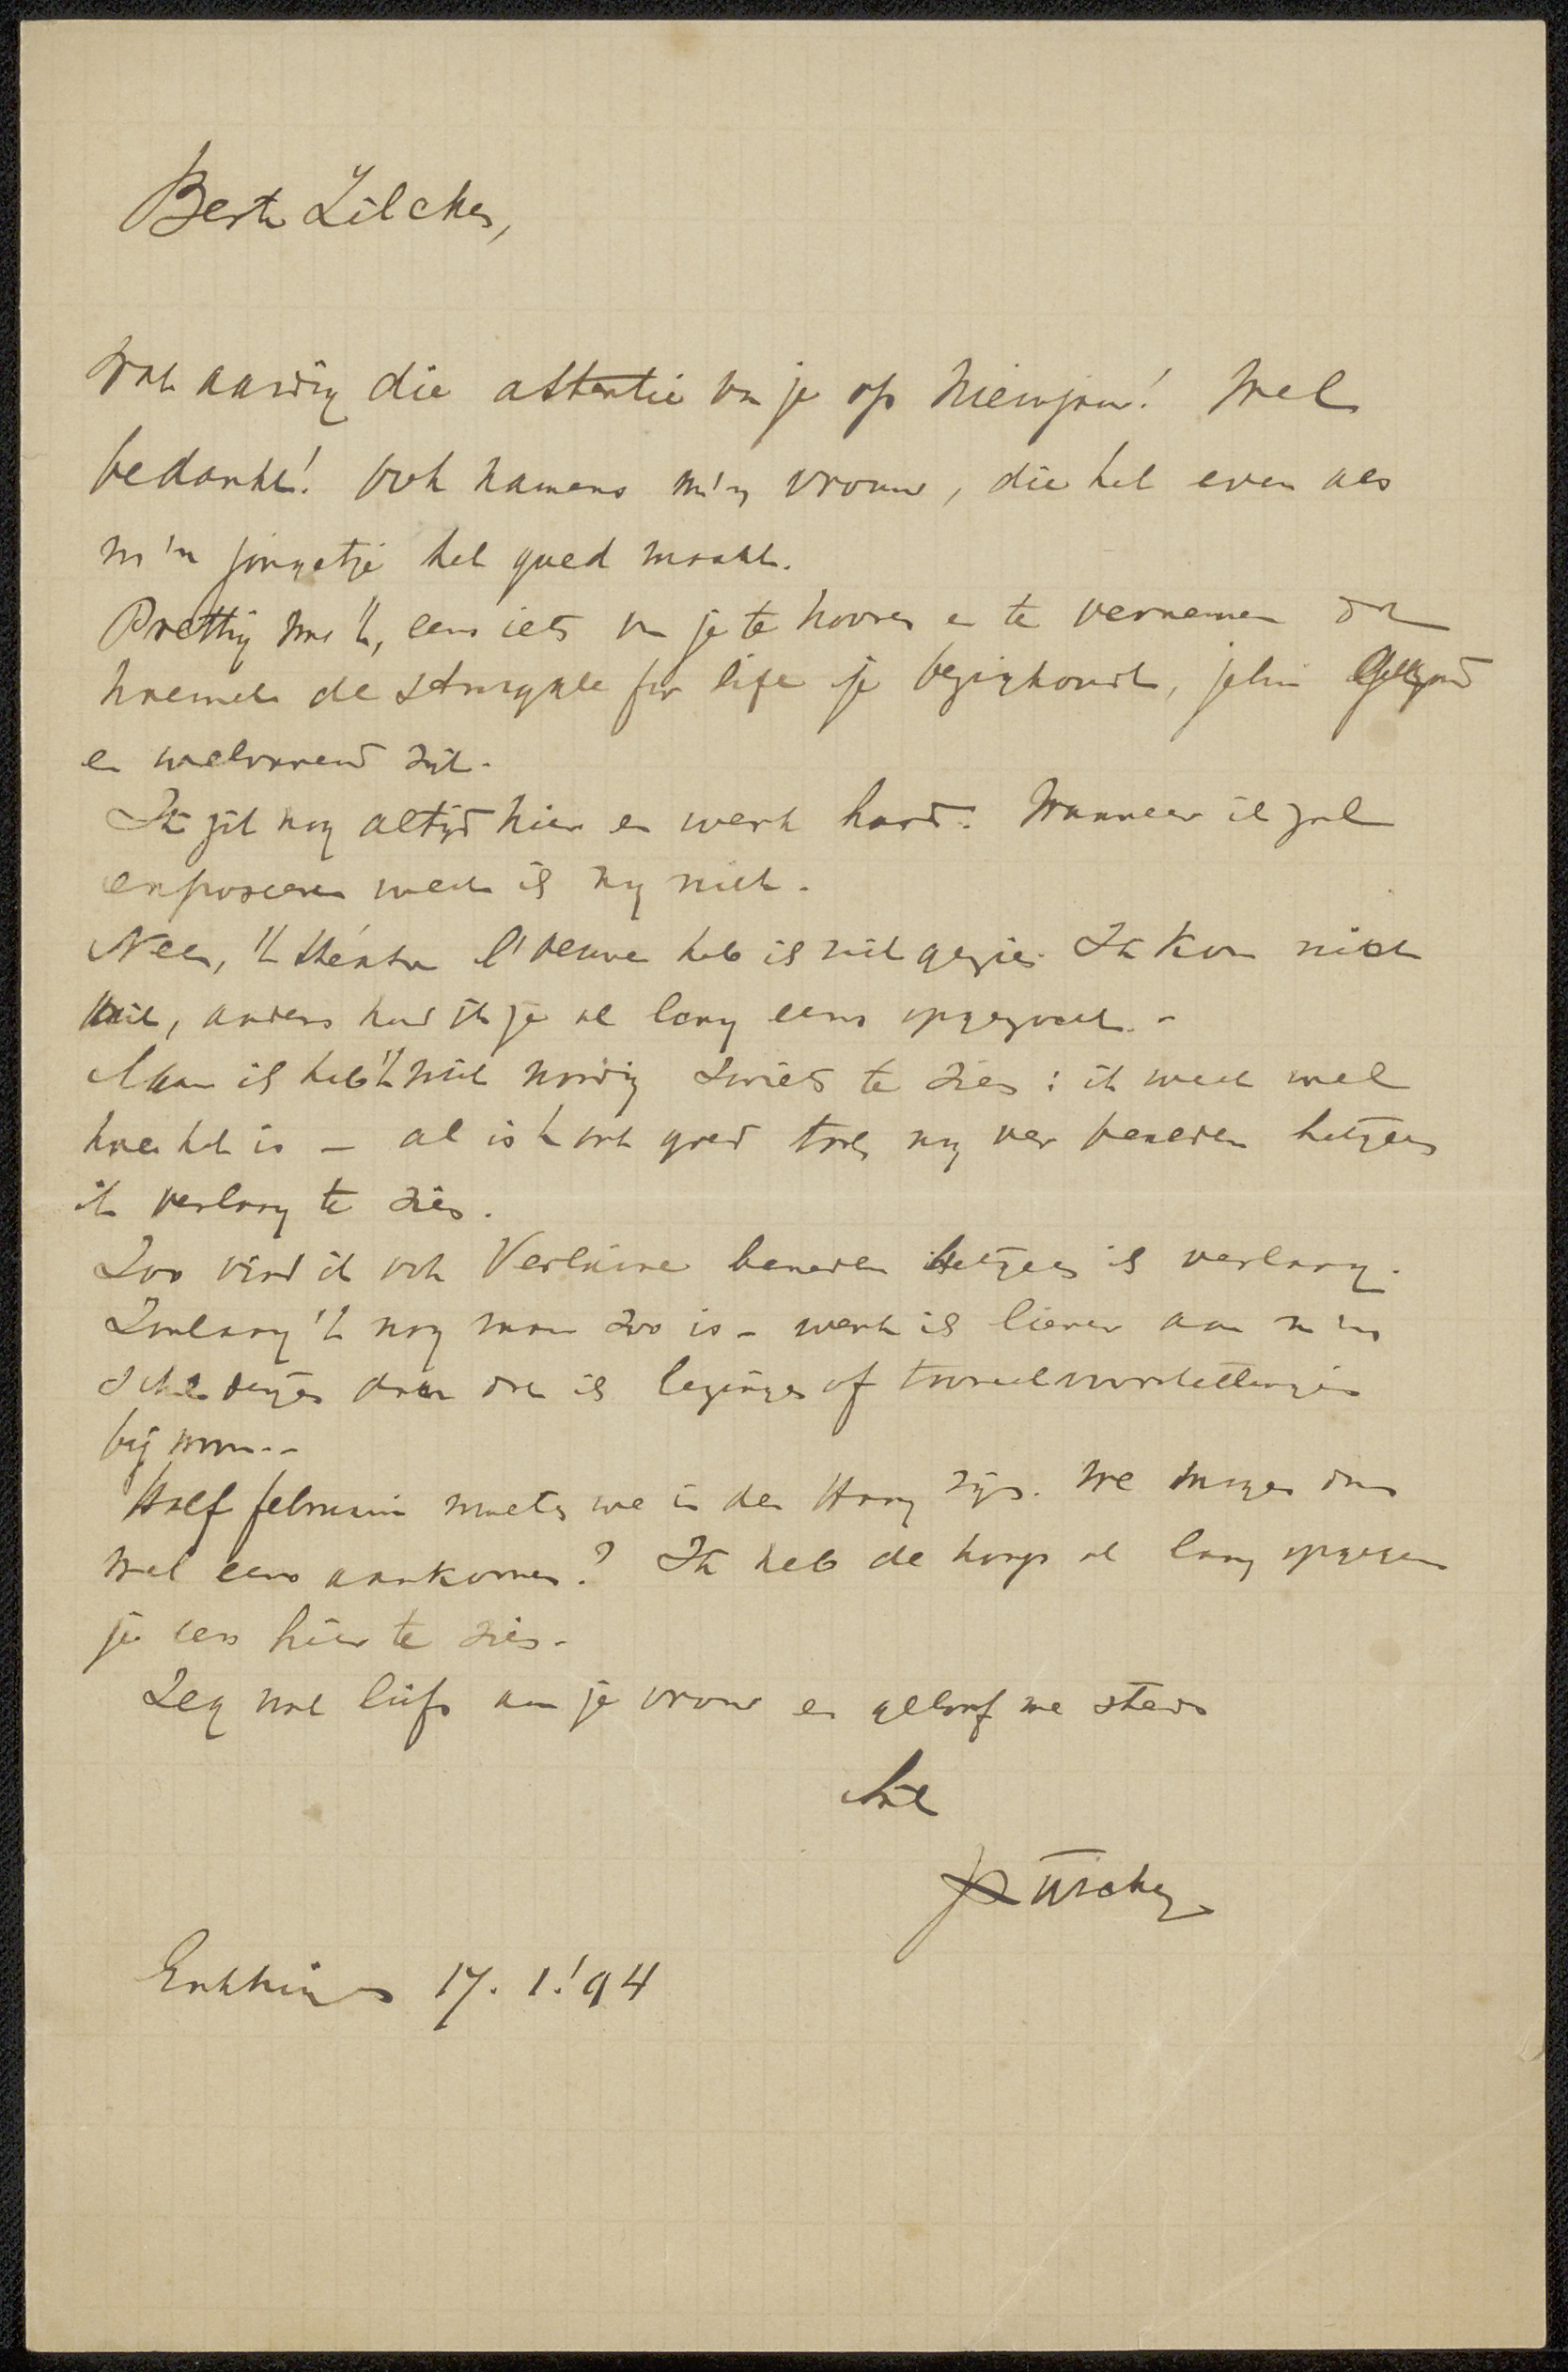 Beste Zilcken,
Wat aardig die attentie van je op Nieuwjaar! Wel
bedankt! Ook namens m'n vrouw, die het even als
m'n jongetje het goed maakt.
Prettig was 't, eens iets van je te hooren en te vernemen dat
hoewel de struggle for life je bezighoudt, jelui gezond
en welvarend zijt.
Ik zit nog altijd hier en werk hard. Wanneer ik zal
exposeeren weet ik nog niet.
Neen, 't théâtre l'oeuvre heb ik niet gezien. Ik kon niet
uit, anders had ik je al lang eens opgezocht. -
Maar ik heb 't niet noodig zoiets te zien: ik weet wel
hoe het is - al is 't ook goed toch nog ver beneden hetgeen
ik verlang te zien.
Zoo vind ik ook Verlaine beneden hetgeen ik verlang.
Zoolang 't nog maar zoo is - werk ik liever aan m'n
schilderijen dan dat ik lezingen of tooneelvoorstellingen
bij woon--
Half februari moeten we in den Haag zijn. We mogen dan
wel eens aankomen? Ik heb de hoop al lang opgegeven
je eens hier te zien.
Zeg wat liefs aan je vrouw en geloof me steeds